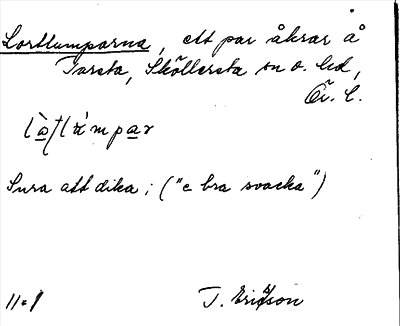 Lortlumparna, ett par åkrar å
Tarsta, Sköllersta sn o. hd,
Ör. l.
Sura att dika; ("e bra svacka")
T. Ericsson